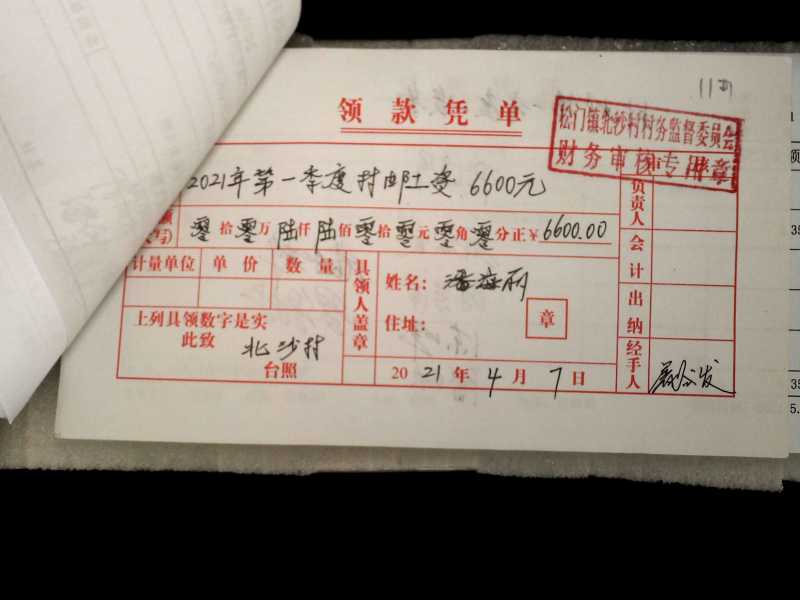 领款凭单
松门镇北沙村村务监督委员会
财务审核专用章
2021年第一季度村邮工资 6600元
零拾零万陆仟陆佰零拾零元零角零分正¥6600.00
计量单位 单价 数量
上列具领数字是实
此致 北沙村
台照
具领人盖章
姓名：潘海丽
住址： 章
2021年4月7日
负责人
会计
出纳
经手人